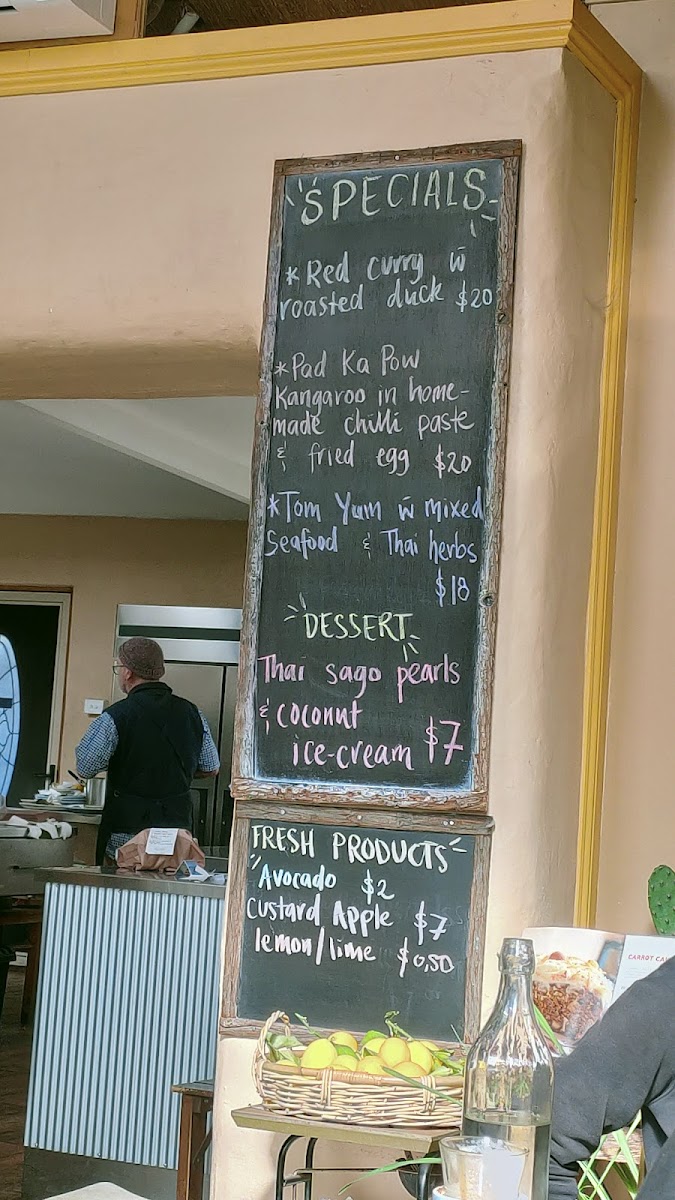 SPECIALS
*Red curry w̄
roasted duck $20
*Pad Ka Pow
Kangaroo in home-
made chilli paste
& fried egg $20
*Tom Yum w̄ mixed
Seafood & Thai herbs
$18
DESSERT
Thai sago pearls
& coconut
ice-cream $7
FRESH PRODUCTS
Avocado $2
Custard Apple $7
lemon/lime $0,50
CARROT